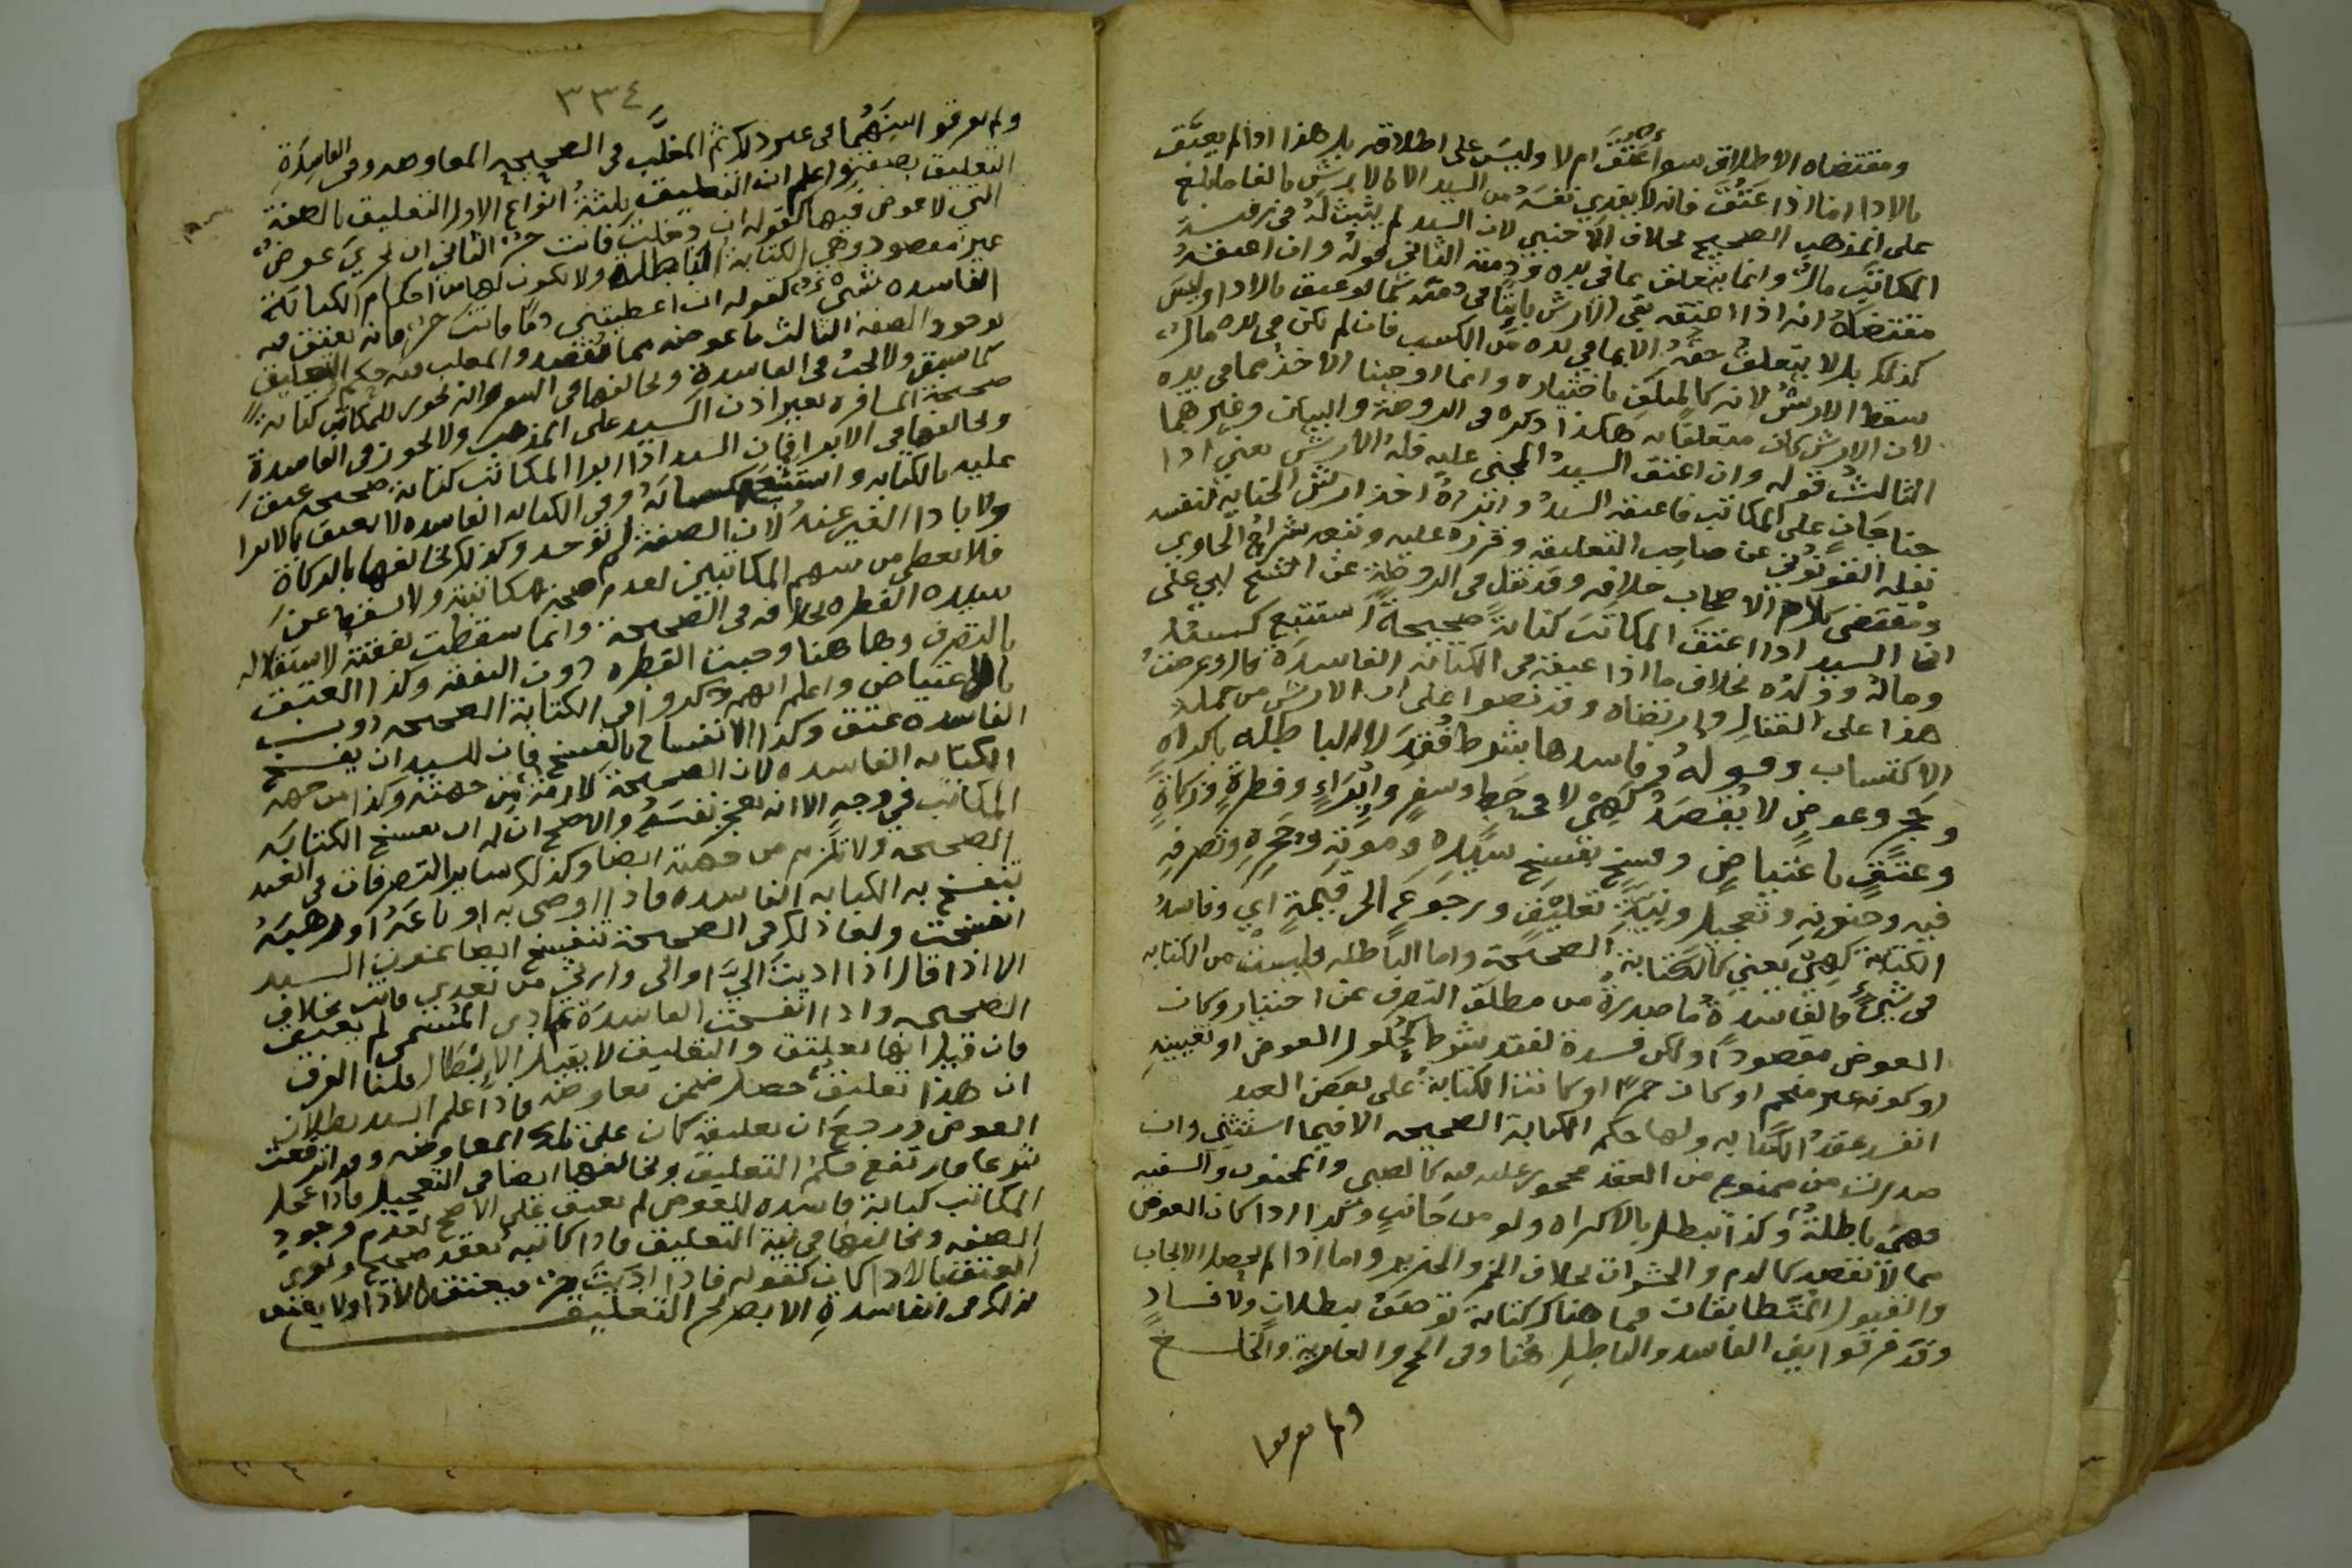 ومقتضاه الاطلاق سوا أعتق ام لا وليس على اطلاقه بل هذا اذا لم يعتق
بالاداء اما اذا عتق فانه لا يفدي نفسه من السيد الا بالارش بالغا ما بلغ
على المذهب الصحيح بخلاف الاجنبي لان السيد لم يثبت له في رقبة
المكاتب مال وانما يتعلق بما في يده وذمته الثاني قوله وان اعتقه
مقتضاه انه اذا اعتقه بقي الارش باقيا في ذمته كما لو عتق بالاداء وليس
كذلك بل لا يتعلق حقه الا بما في يده من الكسب فان لم يكن في يده مال
سقط الارش لانه كالمتلف باختياره وانما اوجبنا الاخذ مما في يده
لان الارش كان متعلقا به هكذا ذكره في الروضة والبيان وغيرهما
الثالث قوله وان اعتق السيد المجني عليه فله الارش يعني اذا
جنا جان على المكاتب فاعتقه السيد وابراه اخذ ارش الجناية لنفسه
نقله القونوي عن صاحب التعليقة وقرره عليه وتبعه شراح الحاوي
ومقتضى كلام الاصحاب خلافه وقد نقل في الروضة عن الشيخ ابي علي
ان السيد اذا اعتق المكاتب كتابة صحيحة استتبع كسبه
وماله وولده بخلاف ما اذا عتقه في الكتابة الفاسدة قال وعرضت
هذا على القفال وارتضاه وقد نصوا على ان الارش من جملة
الاكتساب وقوله وفاسدها بشرط فقد لا الباطلة باكراه
وحجر وعوض لا يقصد كهي لا في حط وسفر وابراء وفطرة وزكاة
وعتق باعتياض وفسخ بفسخ سيده وموته وحجره وتصرفه
فيه وجنونه وتعجيل ونية تعليق ورجوع الى قيمة اي وفاسد
الكتابة كهي يعني كالكتابة الصحيحة واما الباطلة فليست من الكتابة
في شيء فالفاسدة ما صدرت من مطلق التصرف عن اختيار وكان
العوض مقصودا ولكن فسدت لفقد شرط كحلول العوض او تعيينه
او كونه غير منجم او كان خمرا او كانت الكتابة على بعض العبد
انفسد عقد الكتابة ولها حكم الكتابة الصحيحة الا فيما استثني وان
صدرت من ممنوع من العقد محجور عليه فيه كالصبي والمجنون والسفيه
فهي باطلة وكذا تبطل بالاكراه ولو من جانب وكذا اذا كان العوض
مما لا يقصد كالدم والحشرات بخلاف الخمر والخنزير واما اذا لم يحصل الايجاب
والقبول المتطابقات فما هناك كتابة توصف ببطلان ولا فساد
وقد فرقوا بين الفاسد والباطل هنا وفي الحج والعارية والخلع
ولم يفرقوا
٣٣٤
ولم يفرقوا بينهما في غير ذلك ثم المغلب في الصحيحة المعاوضة وفي الفاسدة
التعليق بصفة واعلم ان التعليق ثلثة انواع الاول التعليق بالصفة
التي لا عوض فيها كقوله ان دخلت فانت حر الثاني ان يجري عوض
غير مقصود وهي الكتابة الباطلة ولا يكون لها من احكام الكتابة
الفاسدة شي كقوله ان اعطيتني دما فانت حر فانه يعتق فيه
بوجود الصفة الثالث ما عوضه مما يقصد والمغلب فيه حكم التعليق
كما سبق ولا الحط في الفاسدة ويخالفها في السفر وانه يجوز للمكاتب كتابة
صحيحة المسافرة بغير اذن السيد على المذهب ولا يجوز في الفاسدة
ويخالفها في الابراء فان السيد اذا ابرا المكاتب كتابة صحيحة عتق
عليه بالكتابة واستتبع كسبه وفي الكتابة الفاسدة لا يعتق بالابرا
ولا بادا الغير عنه لان الصفة لم توجد وكذلك يخالفها بالزكاة
فلا يعطى من سهم المكاتبين لعدم صحة مكاتبته ولا يسقط عن
سيده الفطرة بخلافه في الصحيحة وانما سقطت نفقته لاستقلاله
بالتصرف وهاهنا وجبت الفطرة دون النفقة وكذا العتق
بالاعتياض واعلم انهم ذكروا في الكتابة الصحيحة دون
الفاسدة عتق وكذا الانفساخ بالفسخ فان للسيد ان يفسخ
الكتابة الفاسدة لان الصحيحة لازمة من جهته وكذا من جهة
المكاتب في وجه الا انه يعجز نفسه والاصح ان له ان يفسخ الكتابة
الصحيحة ولا تلزم من جهته ايضا وكذلك ساير التصرفات في العبد
تنفسخ به الكتابة الفاسدة فاذا اوصى به او باعه او وهبه
انفسخت ولهذا ذلك في الصحيحة تنفسخ ايضا بموت السيد
الا اذا قال اذا اديت الي او الى وارثي من بعدي فانت بخلاف
الصحيحة واذا انفسخت الفاسدة ثم ادى المسمى لم يعتق
فان قيل انها تعليق والتعليق لا يقبل الابطال قلنا الفرق
ان هذا تعليق حصل ضمن معاوضة فاذا علم السيد بطلان
العوض ورجع ان تعليقه كان على تلك المعاوضة وقد ارتفعت
شرعا فارتفع حكم التعليق ويخالفها ايضا في التعجيل فاذا عجل
المكاتب كتابة فاسدة للعوض لم يعتق على الاصح لعدم وجود
الصفة ويخالفها في نية التعليق فاذا كاتبه بعقد صحيح ونوى
العتق بالادا كان كقوله فاذا اديت حر فيعتق بالادا ولا يعتق
كذلك في الفاسدة الا بصريح التعليق